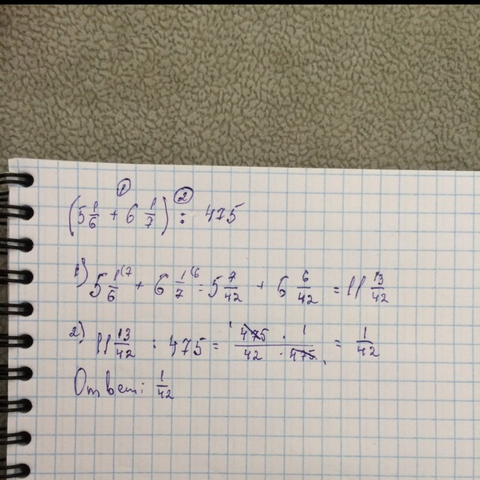 ① ②
(5 1/6 + 6 1/7) : 475
1) 5 1/6 (7 + 6 1/7 (6 = 5 7/42 + 6 6/42 = 11 13/42
2) 11 13/42 : 475 = 475 · 1 / 42 · 475 = 1/42
Ответ: 1/42